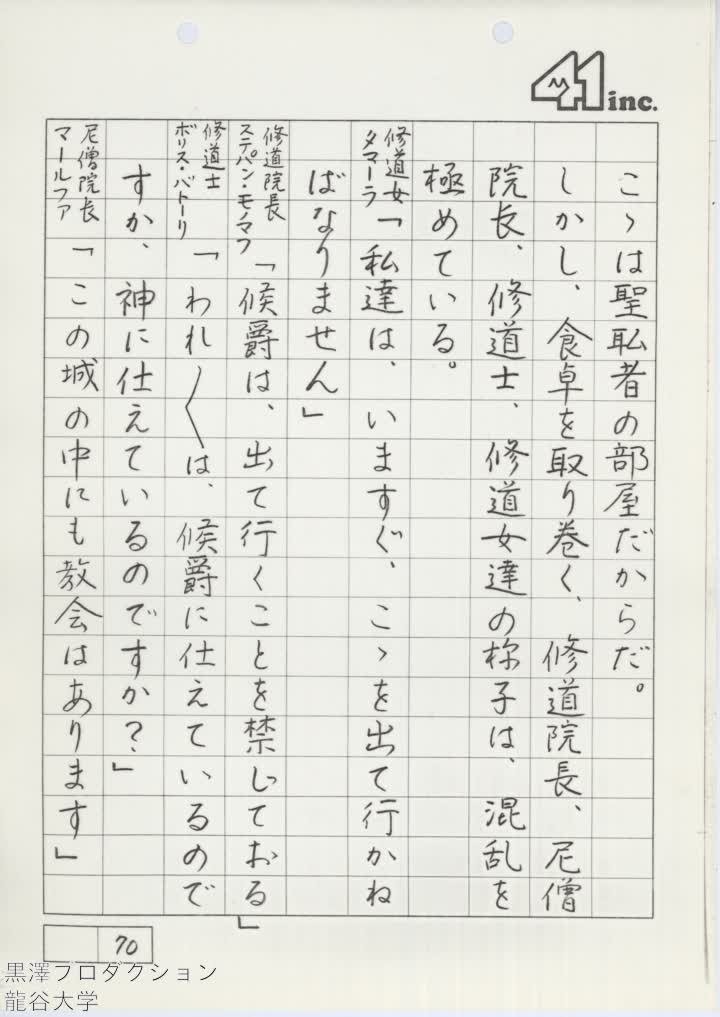 41 inc.
こゝは聖職者の部屋だからだ。
しかし、食卓を取り巻く、修道院長、尼僧
院長、修道士、修道女達の様子は、混乱を
極めている。
修道女
タマーラ「私達は、いますぐ、こゝを出て行かね
ばなりません」
修道院長
ステパン・モノマフ「候爵は、出て行くことを禁じておる」
修道士
ボリス・バトーリ「われ〳〵は、候爵に仕えているので
すか、神に仕えているのですか?」
尼僧院長
マールファ「この城の中にも教会はあります」
70
黒澤プロダクション
龍谷大学